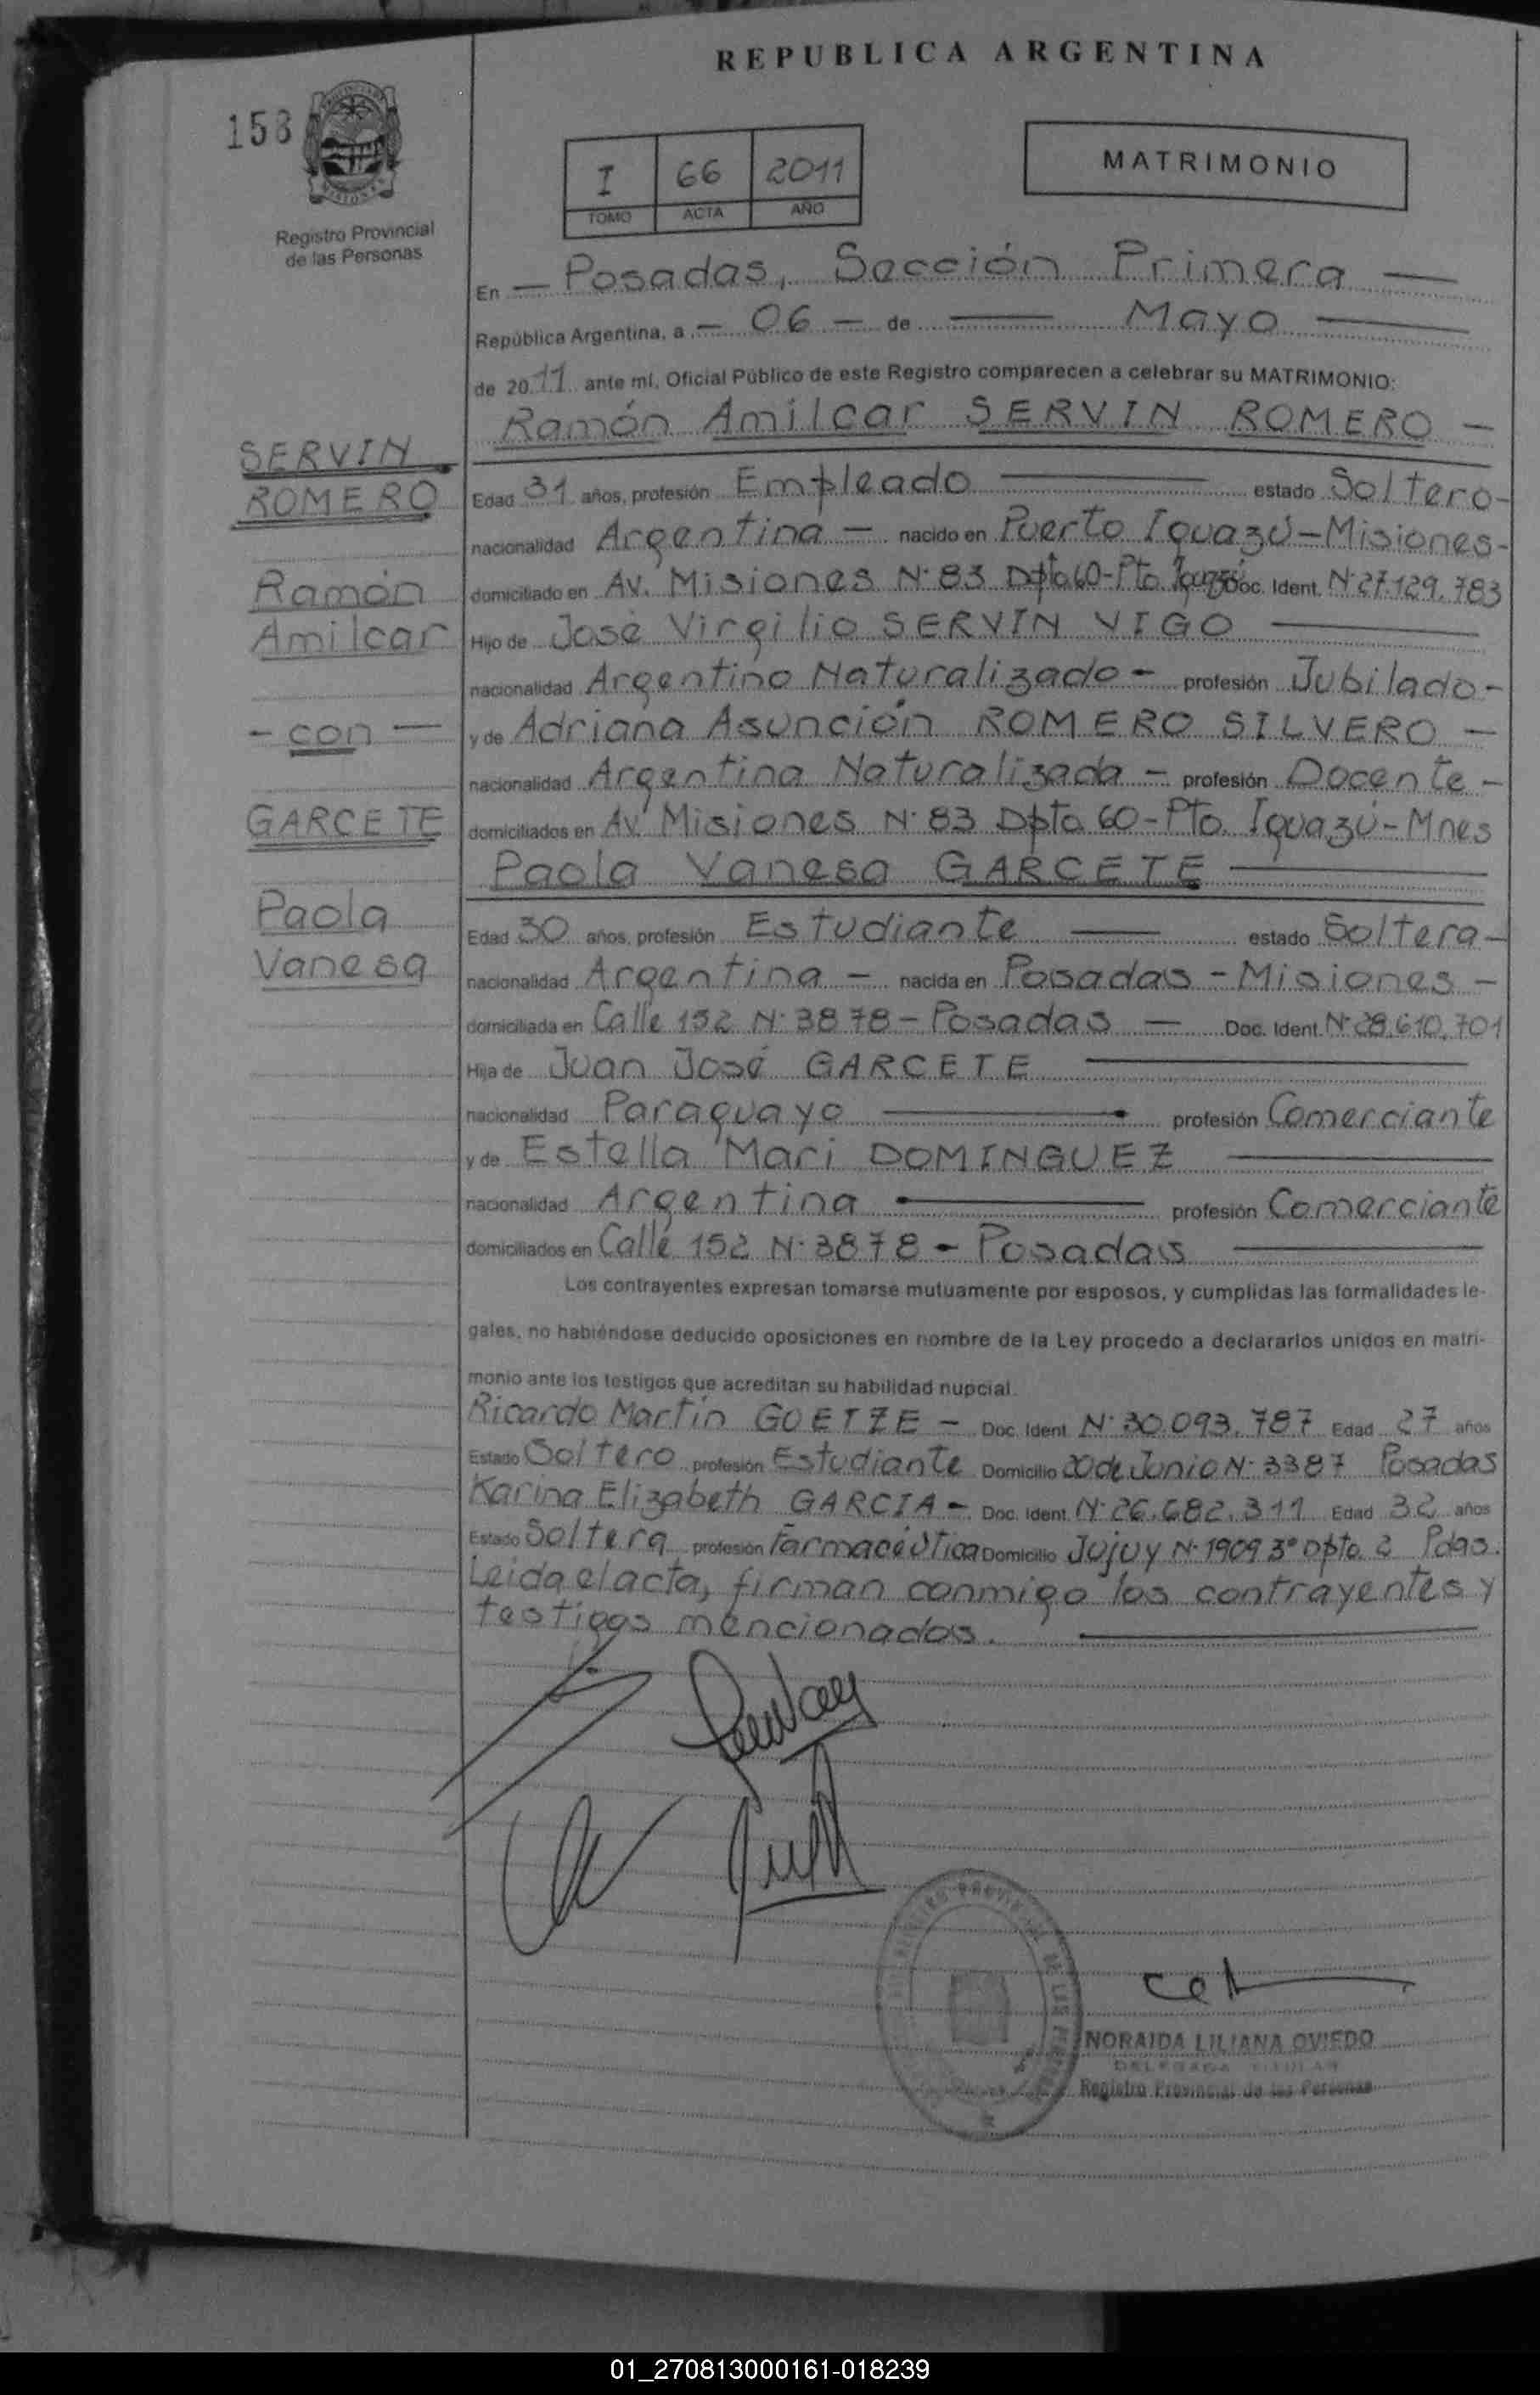 REPUBLICA ARGENTINA
158
Registro Provincial
de las Personas
I 66 2011
TOMO ACTA AÑO
MATRIMONIO
En — Posadas, Sección Primera —
República Argentina, a — 06 — de — Mayo —
de 2011 ante mí, Oficial Público de este Registro comparecen a celebrar su MATRIMONIO:
Ramón Amilcar SERVIN ROMERO —
SERVIN
ROMERO
Ramón
Amilcar
- con —
GARCETE
Paola
Vanesa
Edad 31 años, profesión Empleado — estado Soltero-
nacionalidad Argentina — nacido en Puerto Iguazú-Misiones-
domiciliado en Av. Misiones N° 83 Dpto 60-Pto. Iguazú Doc. Ident. N° 27.129.783
Hijo de José Virgilio SERVIN VIGO —
nacionalidad Argentino Naturalizado - profesión Jubilado-
y de Adriana Asunción ROMERO SILVERO —
nacionalidad Argentina Naturalizada - profesión Docente -
domiciliados en Av. Misiones N° 83 Dpto 60-Pto. Iguazú-Mnes
Paola Vanesa GARCETE —
Edad 30 años, profesión Estudiante — estado Soltera-
nacionalidad Argentina — nacida en Posadas - Misiones -
domiciliada en Calle 152 N° 3878 - Posadas — Doc. Ident. N° 28.610.701
Hija de Juan José GARCETE —
nacionalidad Paraguayo — profesión Comerciante
y de Estella Mari DOMINGUEZ —
nacionalidad Argentina — profesión Comerciante
domiciliados en Calle 152 N° 3878 - Posadas —
Los contrayentes expresan tomarse mutuamente por esposos, y cumplidas las formalidades le-
gales, no habiéndose deducido oposiciones en nombre de la Ley procedo a declararlos unidos en matri-
monio ante los testigos que acreditan su habilidad nupcial.
Ricardo Martín GOETZE - Doc. Ident. N° 30.093.787 Edad 27 años
Estado Soltero profesión Estudiante Domicilio 20 de Junio N° 3387 Posadas
Karina Elizabeth GARCIA - Doc. Ident. N° 26.682.311 Edad 32 años
Estado Soltera profesión Farmacéutica Domicilio Jujuy N° 1909 3° Dpto. 2 Pdas.
Leida el acta, firman conmigo los contrayentes y
testigos mencionados. —
NORAIDA LILIANA OVIEDO
DELEGADA TITULAR
Registro Provincial de las Personas
01_270813000161-018239